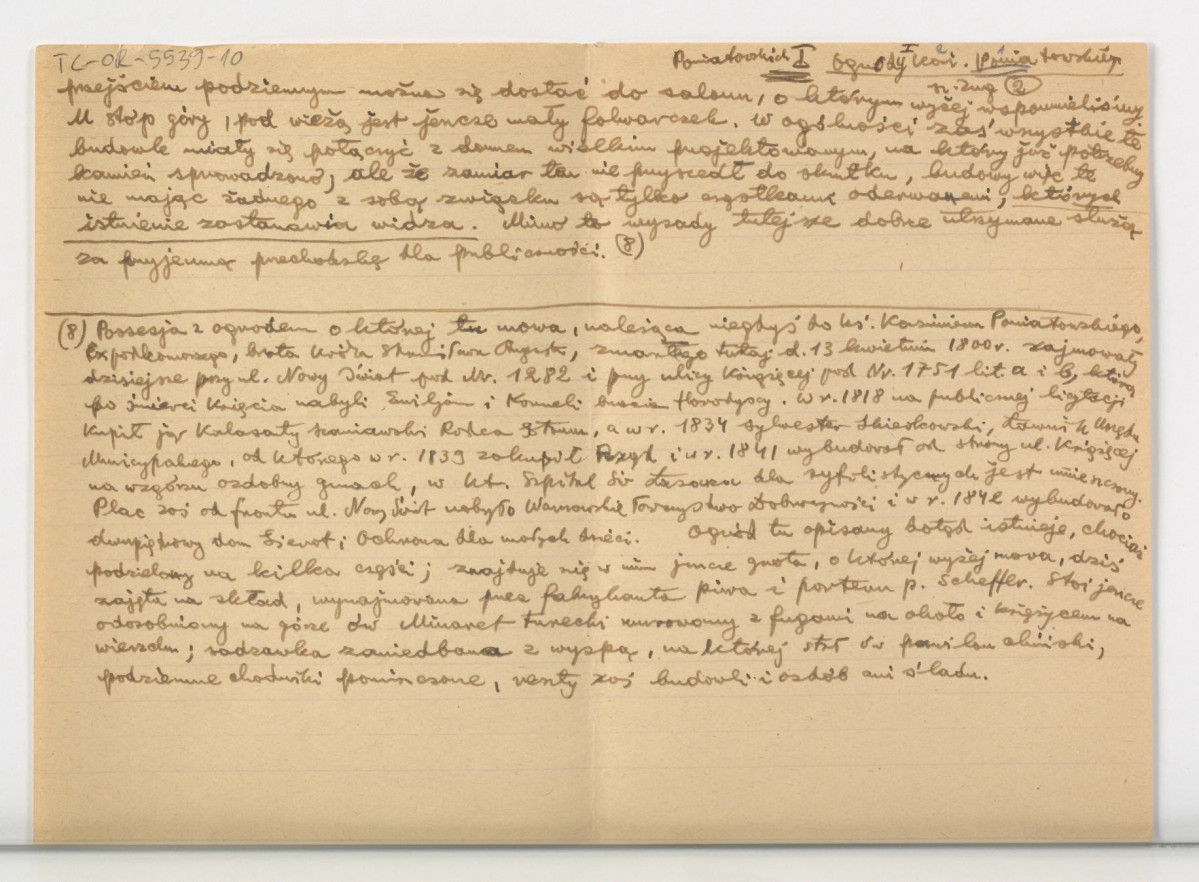 TG-OR-5539-10
Poniatowskich I Ogrody Kazi. Poniatowskieg
przejściem podziemnym można się dostać do salonu, o którym wyżej wspomnieliśmy.
U stóp góry, pod wieżą jest jeszcze mały folwarczek. W ogólności zaś wszystkie te
budowle miały się połączyć z domem wielkim projektowanym, na który już potrzebny
kamień sprowadzono, ale że zamiar ten nie przyszedł do skutku, budowy więc te
nie mając żadnego z sobą związku są tylko cząstkami oderwanemi, których
istnienie zastanawia widza. Mimo to wysady tutejsze dobre utrzymane służą
za przyjemną przechadzkę dla publiczności. (8)
(8) Possesja z ogrodem o której tu mowa, należąca niegdyś do ks. Kazimierza Poniatowskiego,
Ex podkomorzego, brata króla Stanisława Augusta, zmarłego tutaj d. 13 kwietnia 1800 r. zajmowała
dzisiejsze przy ul. Nowy Świat pod Nr. 1282 i przy ulicy Książęcej pod Nr. 1751 lit. a i b, którą
po śmierci Księcia nabyli Emiljan i Korneli bracia Horodyscy. W r. 1818 na publicznej licytacji
kupił ją Kalasanty Szaniawski Radca Stanu, a w r. 1834 Sylwester Skierkowski, Ławnik Urzędu
Municypalnego, od którego w r. 1839 zakupił Rząd i w r. 1841 wybudował od strony ul. Książęcej
na wzgórzu ozdobny gmach, w kt. Szpital Św Łazarza dla syfilistycznych jest umieszczony.
Plac zaś od frontu ul. Nowy Świat nabyło Warszawskie Towarzystwo Dobroczynności i w r. 1842 wybudowało
dwupiętrowy dom Sierot i Ochrona dla małych dzieci. Ogród tu opisany dotąd istnieje, chociaż
podzielony na kilka części; znajduje się w nim jeszcze grota, o której wyżej mowa, dziś
zajęta na skład, wynajmowana przez fabrykanta piwa i porteru p. Scheffer. Stoi jeszcze
odosobniony na górze ów Minaret turecki murowany z fugami na około i księżycem na
wierzchu; sadzawka zaniedbana z wyspą, na której stał ów pawilon chiński,
podziemne chodniki poniszczone, reszty zaś budowli i ozdób ani śladu.